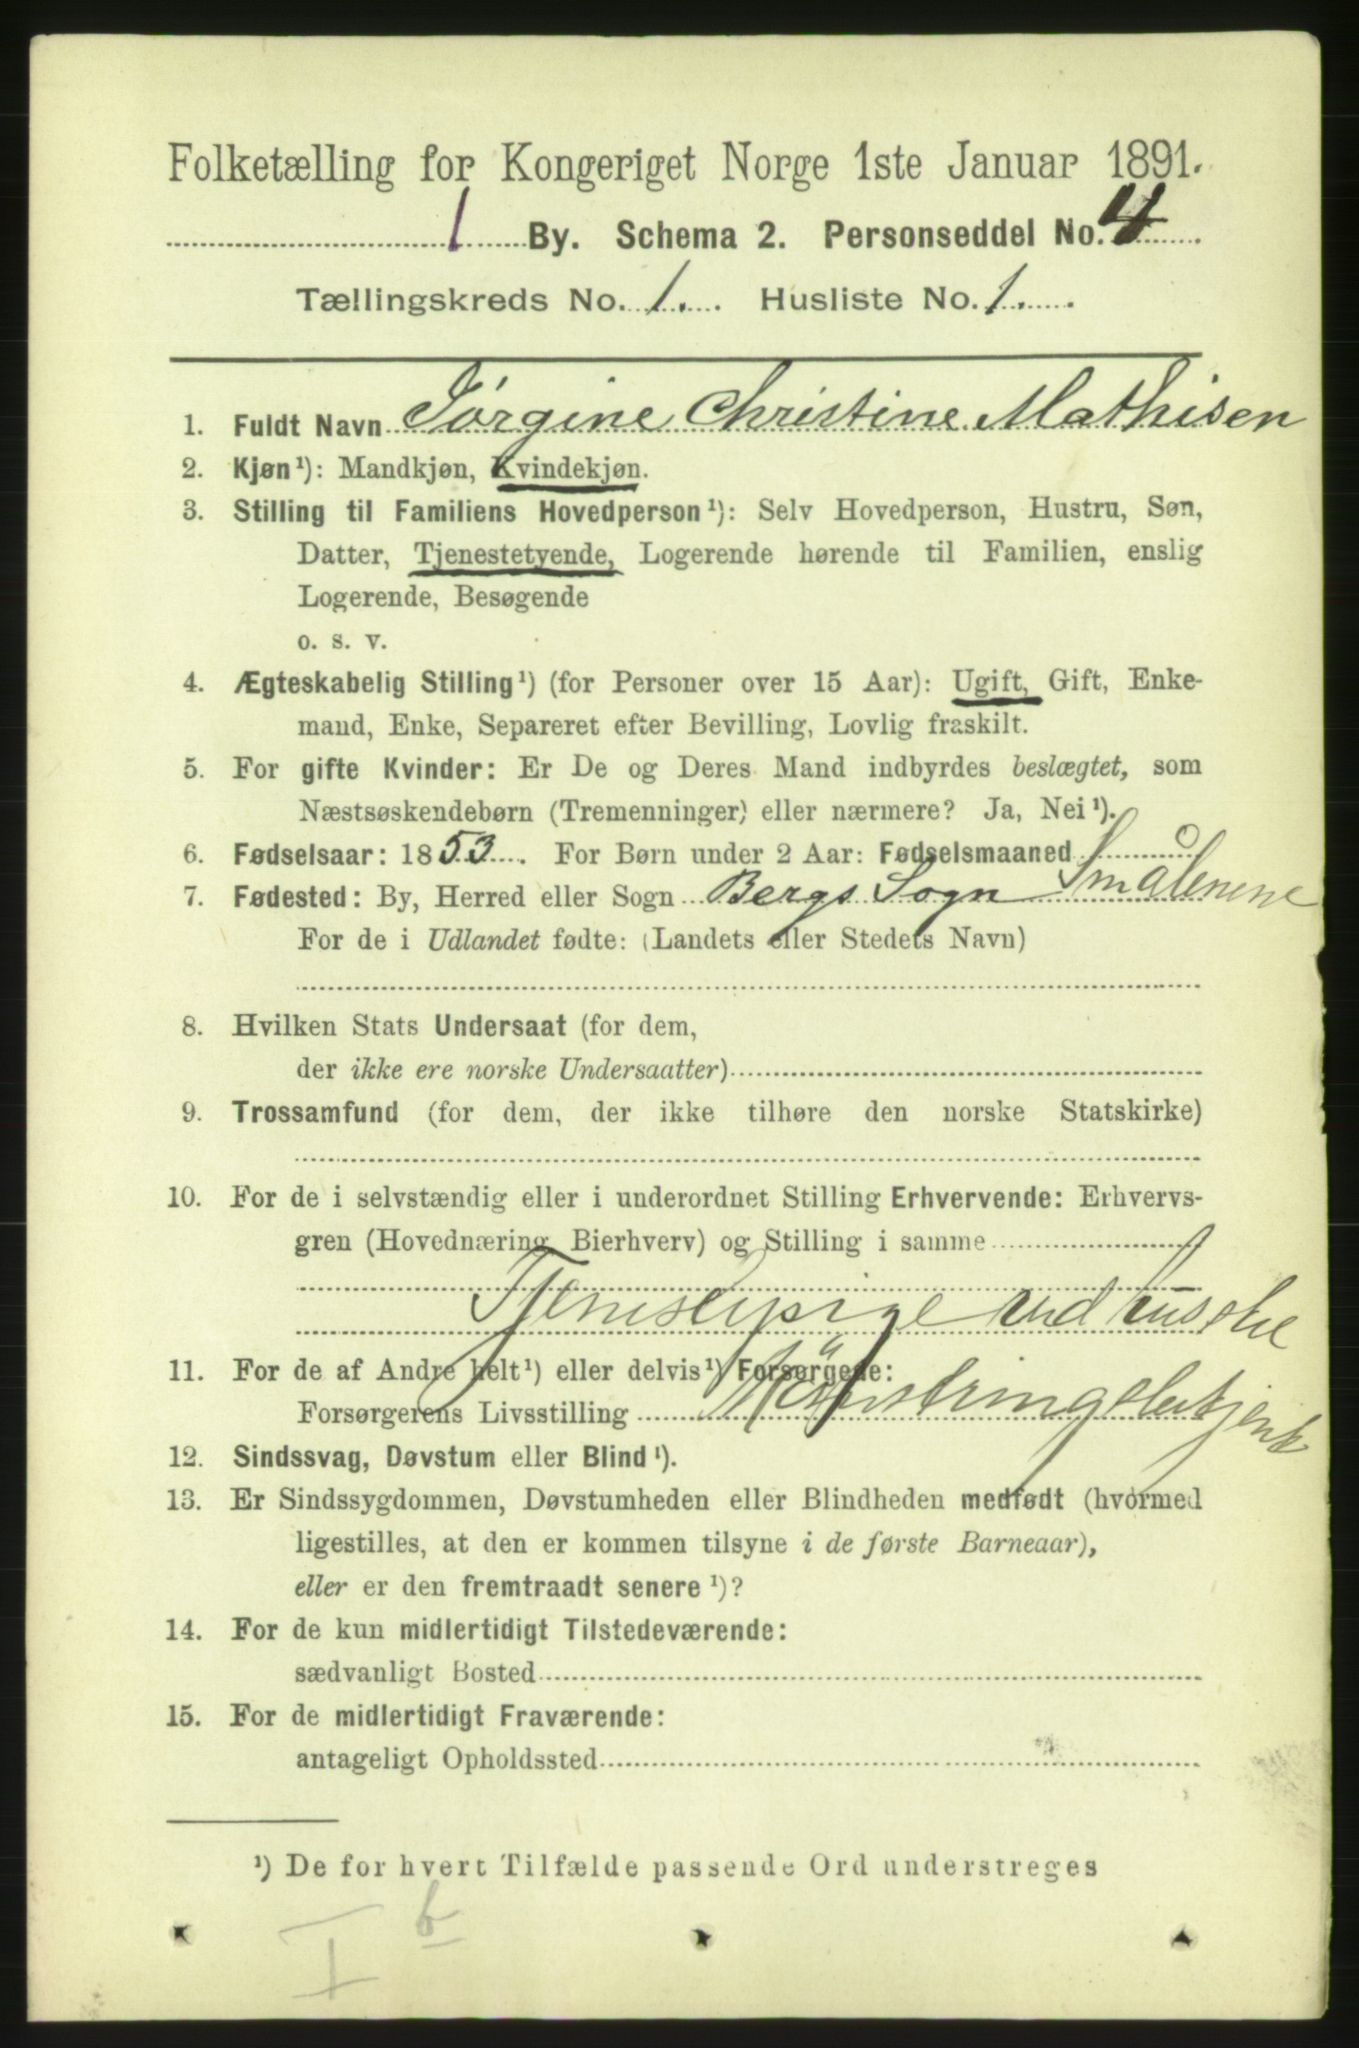 Folketælling for Kongeriget Norge 1ste Januar 1891.
1 By. Schema 2. Personseddel No. 4
Tællingskreds No. 1. Husliste No. 1.
1. Fuldt Navn Jørgine Christine Mathisen
2. Kjøn¹): Mandkjøn, Kvindekjøn.
3. Stilling til Familiens Hovedperson¹): Selv Hovedperson, Hustru, Søn,
Datter, Tjenestetyende, Logerende hørende til Familien, enslig
Logerende, Besøgende
o. s. v.
4. Ægteskabelig Stilling¹) (for Personer over 15 Aar): Ugift, Gift, Enke-
mand, Enke, Separeret efter Bevilling, Lovlig fraskilt.
5. For gifte Kvinder: Er De og Deres Mand indbyrdes beslægtet, som
Næstsøskendebørn (Tremenninger) eller nærmere? Ja, Nei¹).
6. Fødselsaar: 1853. For Børn under 2 Aar: Fødselsmaaned
7. Fødested: By, Herred eller Sogn Bergs Sogn Smålenene
For de i Udlandet fødte: (Landets eller Stedets Navn)
8. Hvilken Stats Undersaat (for dem,
der ikke ere norske Undersaatter)
9. Trossamfund (for dem, der ikke tilhøre den norske Statskirke)
10. For de i selvstændig eller i underordnet Stilling Erhvervende: Erhvervs-
gren (Hovednæring, Bierhverv) og Stilling i samme
Tjenestepige ved
11. For de af Andre helt¹) eller delvis¹) Forsørgede:
Forsørgerens Livsstilling
12. Sindssvag, Døvstum eller Blind¹).
13. Er Sindssygdommen, Døvstumheden eller Blindheden medfødt (hvormed
ligestilles, at den er kommen tilsyne i de første Barneaar),
eller er den fremtraadt senere¹)?
14. For de kun midlertidigt Tilstedeværende:
sædvanligt Bosted
15. For de midlertidigt Fraværende:
antageligt Opholdssted
¹) De for hvert Tilfælde passende Ord understreges
I b